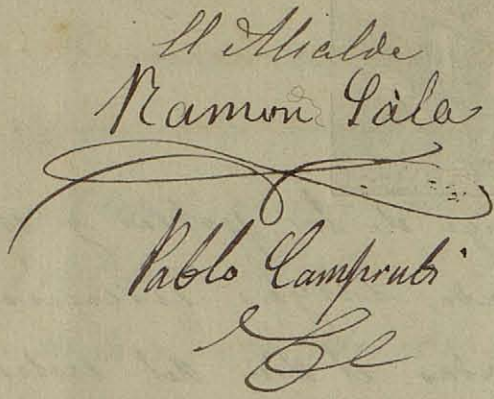 El Alcalde
Ramon Sala
Pablo Camprubi